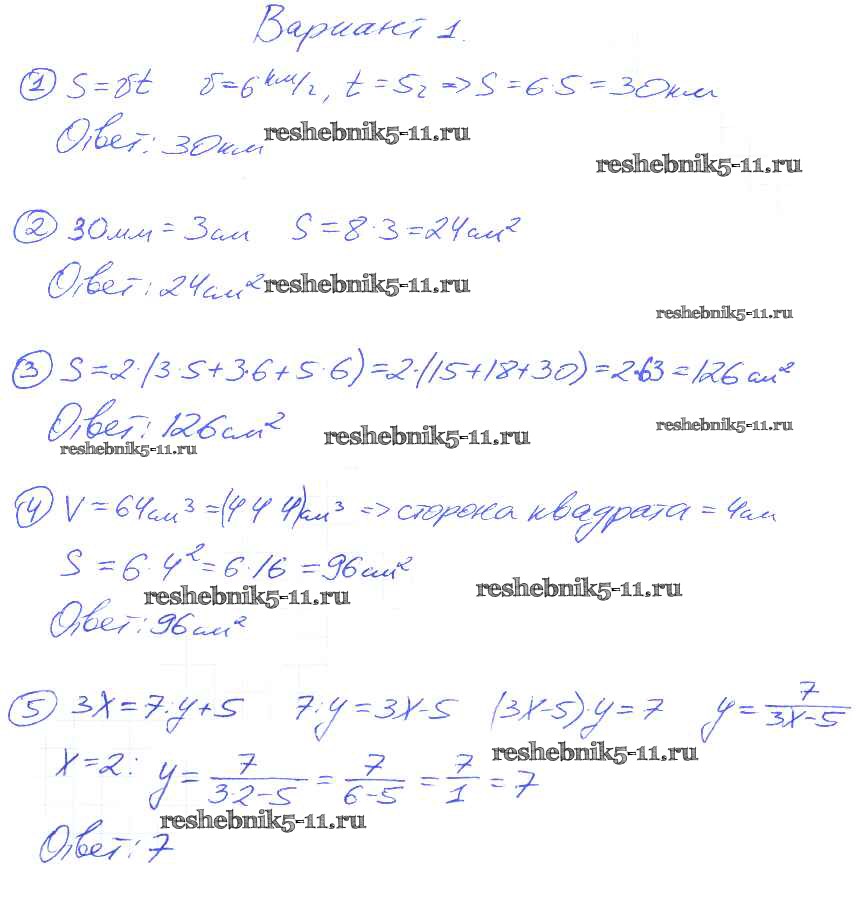 Вариант 1.
① S = υt υ = 6 км/ч, t = 5ч => S = 6·5 = 30км
Ответ: 30км
reshebnik5-11.ru
reshebnik5-11.ru
② 30мм = 3см S = 8·3 = 24см²
Ответ: 24см²
reshebnik5-11.ru
reshebnik5-11.ru
③ S = 2·(3·5+3·6+5·6) = 2·(15+18+30) = 2·63 = 126см²
Ответ: 126см²
reshebnik5-11.ru
reshebnik5-11.ru
reshebnik5-11.ru
④ V = 64см³ = (4·4·4)см³ => сторона квадрата = 4см
S = 6·4² = 6·16 = 96см²
reshebnik5-11.ru
reshebnik5-11.ru
Ответ: 96см²
⑤ 3x = 7:y+5 7:y = 3x-5 (3x-5)·y = 7 y = 7/(3x-5)
reshebnik5-11.ru
x = 2: y = 7/(3·2-5) = 7/(6-5) = 7/1 = 7
reshebnik5-11.ru
Ответ: 7